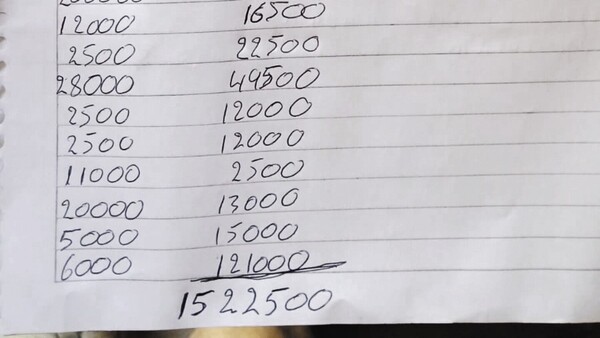 12000 16500
2500 22500
28000 49500
2500 12000
2500 12000
11000 2500
20000 13000
5000 15000
6000 121000
1522500